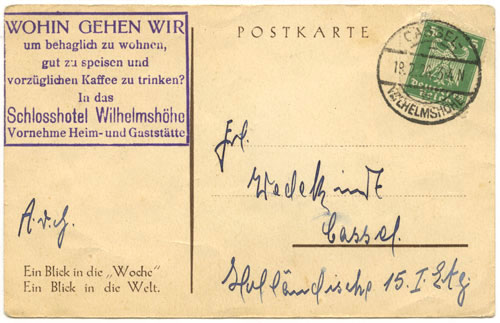 WOHIN GEHEN WIR
um behaglich zu wohnen,
gut zu speisen und
vorzüglichen Kaffee zu trinken?
In das
Schlosshotel Wilhelmshöhe
Vornehme Heim- und Gaststätte
POSTKARTE
CASSEL-
WILHELMSHÖHE
Frl.
Wedekindt
Cassel.
Holländische 15. I. Etg
Ein Blick in die „Woche“
Ein Blick in die Welt.